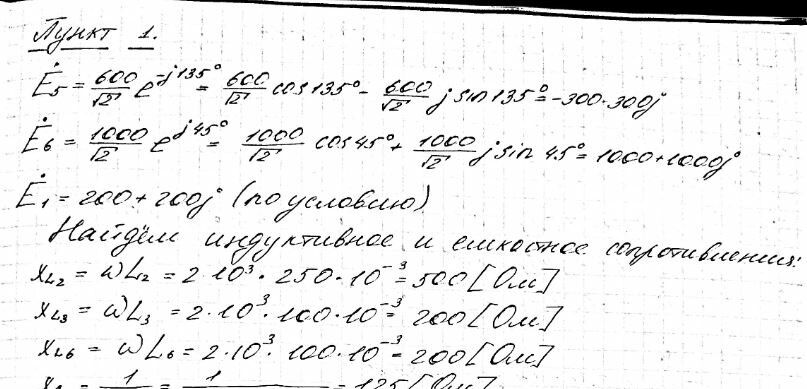 Пункт 1.
Ė₅ = 600/√2 e^(-j135°) = 600/√2 cos135° - 600/√2 j sin135° = -300-300j
Ė₆ = 1000/√2 e^(j45°) = 1000/√2 cos45° + 1000/√2 j sin 45° = 1000+1000j
Ė₁ = 200 + 200j (по условию)
Найдём индуктивное и емкостное сопротивления:
x_L₂ = ωL₂ = 2·10³·250·10⁻³ = 500 [Ом]
x_L₃ = ωL₃ = 2·10³·100·10⁻³ = 200 [Ом]
x_L₆ = ωL₆ = 2·10³·100·10⁻³ = 200 [Ом]
= 1 = 1 = 125 [Ом]